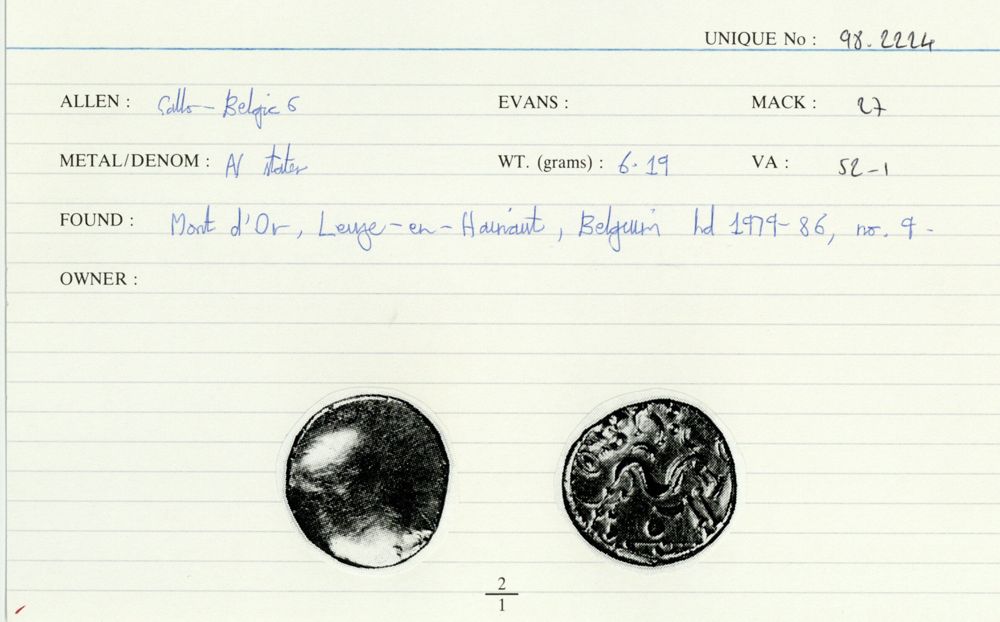 UNIQUE No : 98.2224
ALLEN : Gallo-Belgic E
EVANS :
MACK : 27
METAL/DENOM : AV stater
WT. (grams) : 6.19
VA : 52-1
FOUND : Mont d'Or, Leuze-en-Hainaut, Belgium hd 1979-86, no. 9.
OWNER :
2
1